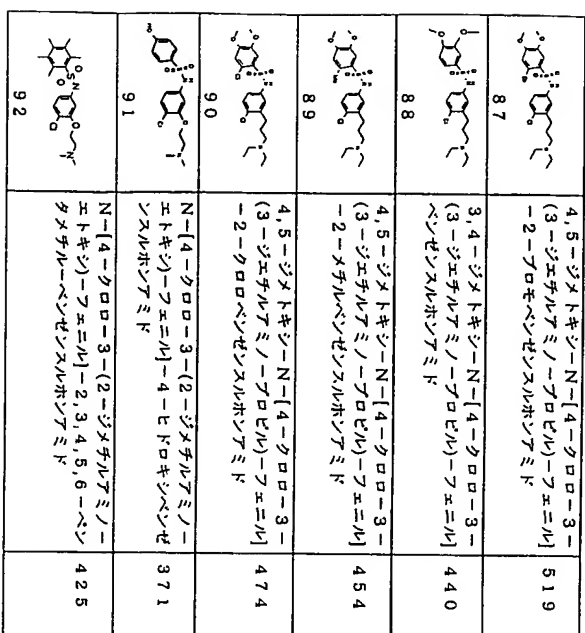 87
4,5-ジメトキシ-N-[4-クロロ-3-
(3-ジエチルアミノ-プロピル)-フェニル]
-2-ブロモベンゼンスルホンアミド
519
88
3,4-ジメトキシ-N-[4-クロロ-3-
(3-ジエチルアミノ-プロピル)-フェニル]
ベンゼンスルホンアミド
440
89
4,5-ジメトキシ-N-[4-クロロ-3-
(3-ジエチルアミノ-プロピル)-フェニル]
-2-メチルベンゼンスルホンアミド
454
90
4,5-ジメトキシ-N-[4-クロロ-3-
(3-ジエチルアミノ-プロピル)-フェニル]
-2-クロロベンゼンスルホンアミド
474
91
N-[4-クロロ-3-(2-ジメチルアミノ-
エトキシ)-フェニル]-4-ヒドロキシベンゼ
ンスルホンアミド
371
92
N-[4-クロロ-3-(2-ジメチルアミノ-
エトキシ)-フェニル]-2,3,4,5,6-ペン
タメチル-ベンゼンスルホンアミド
425